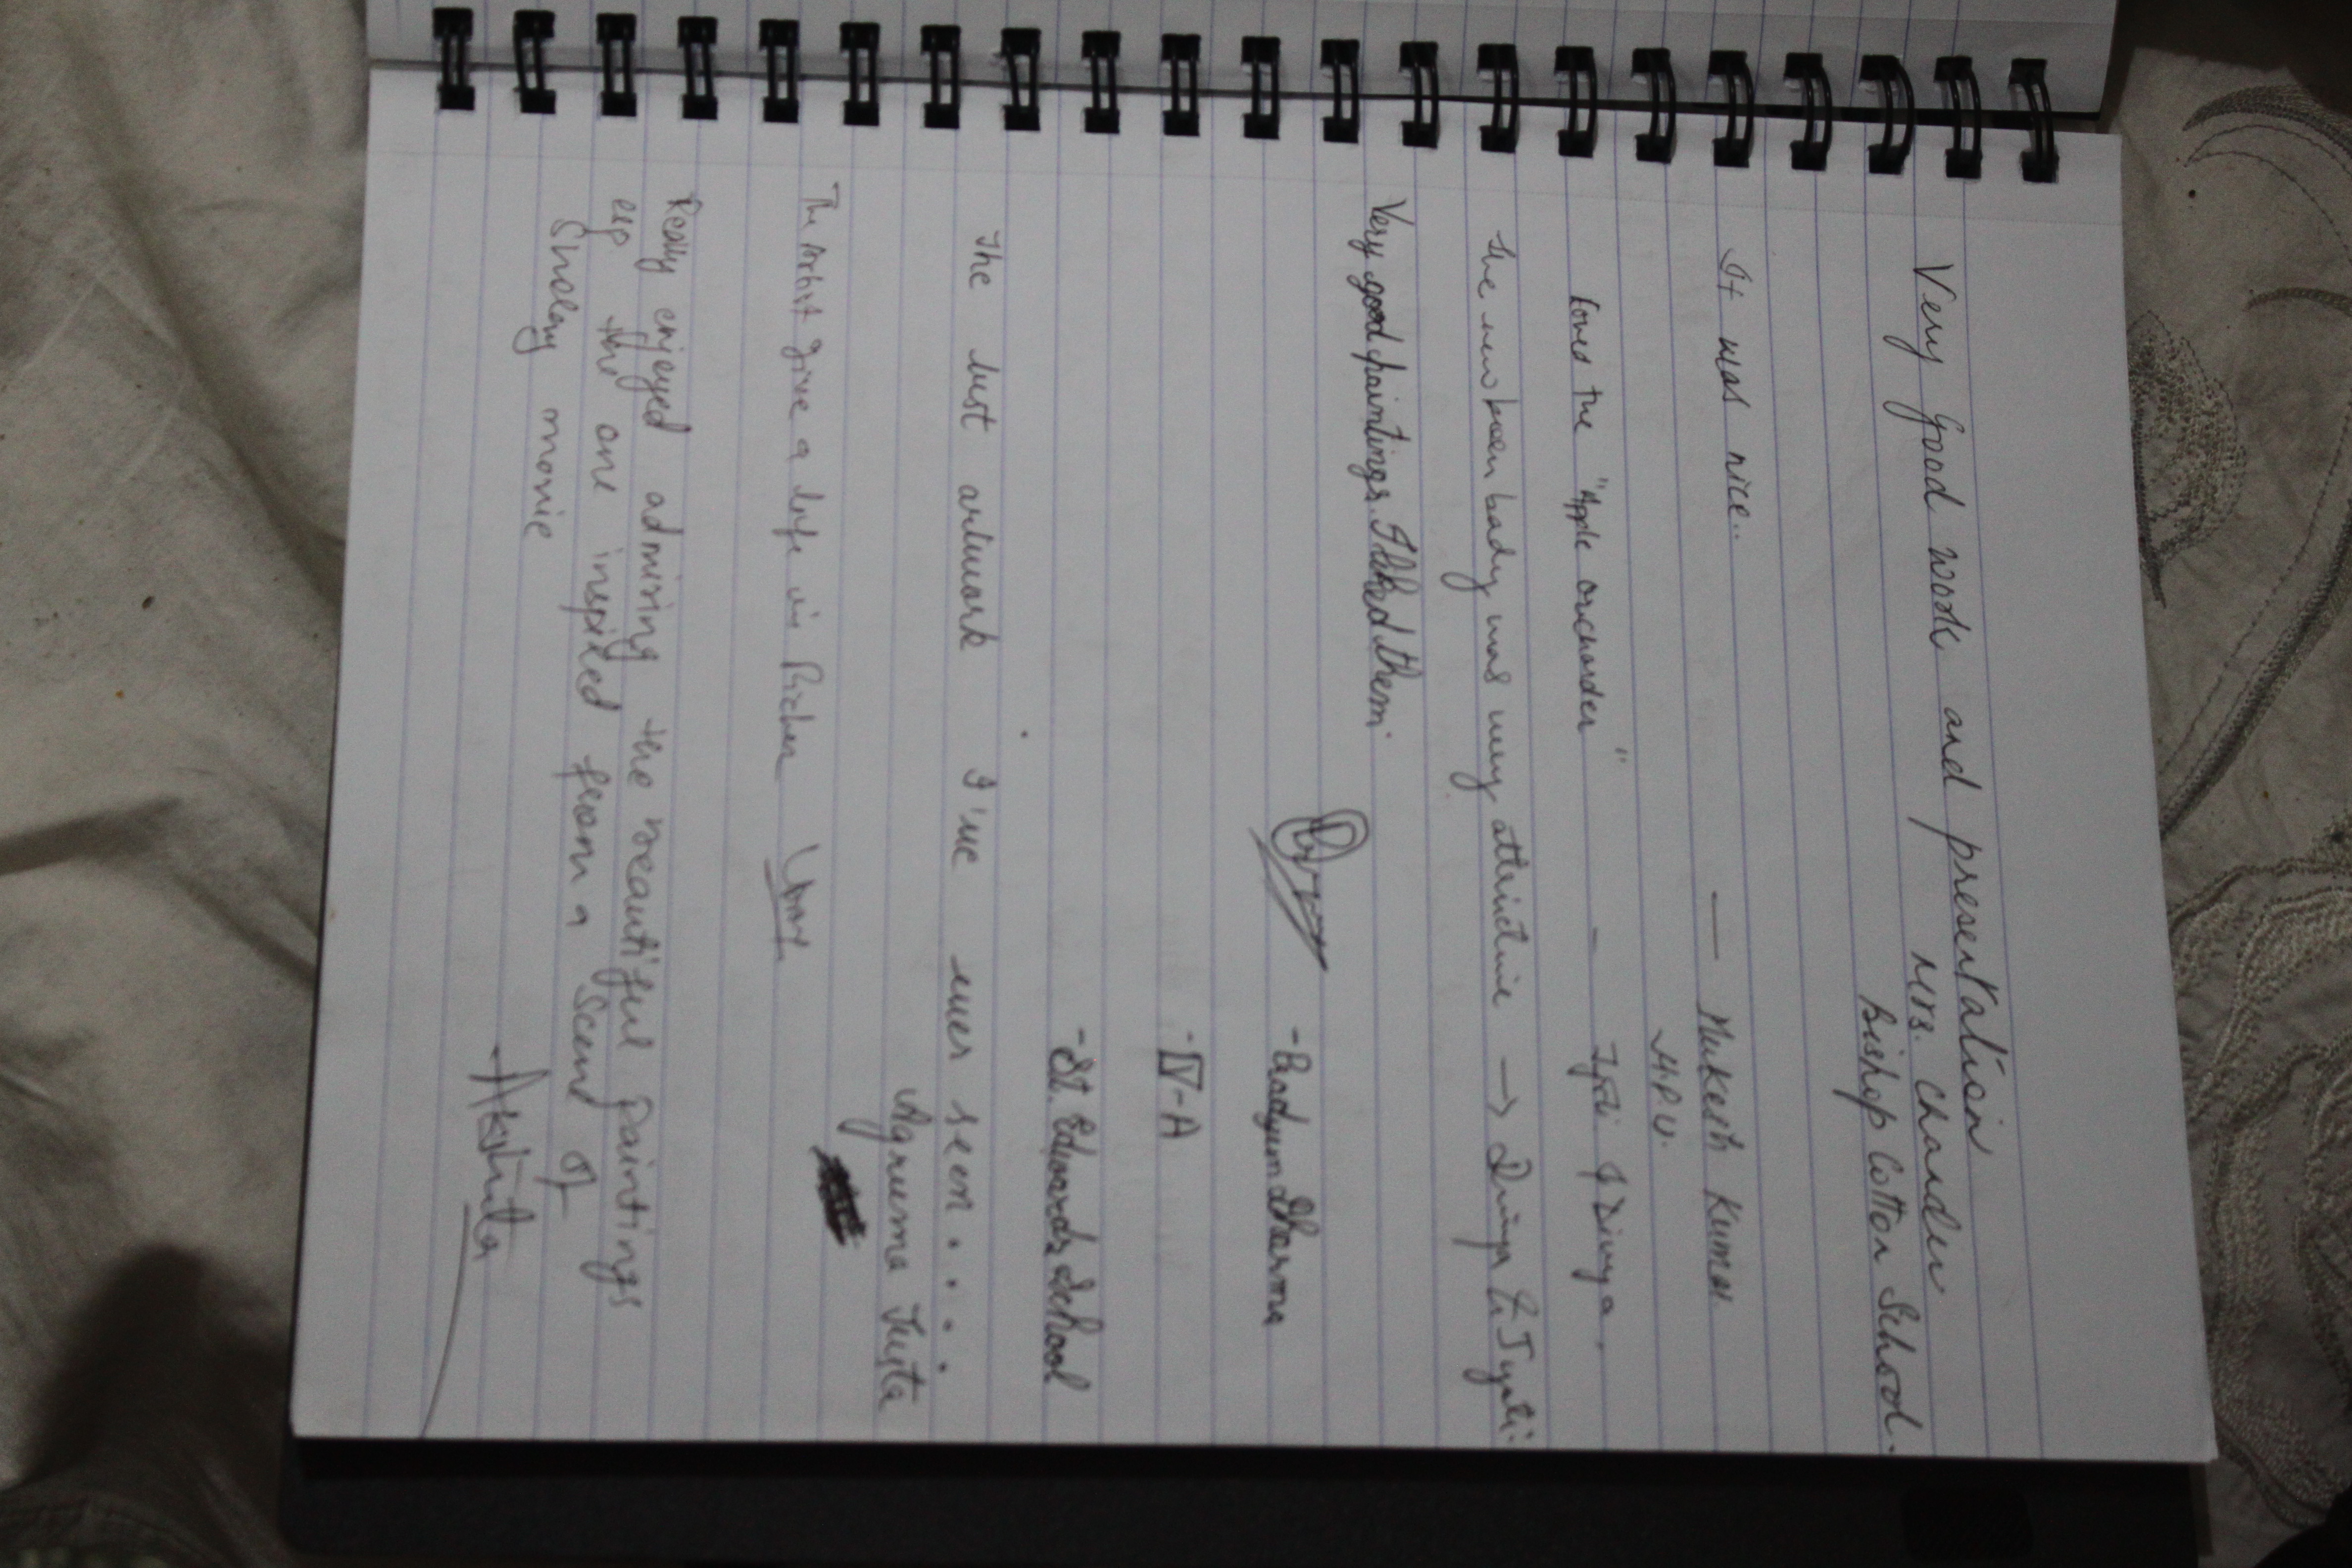 Very good work and presentation
Mrs. Chander
Bishop Cotton School.
It was nice..
— Mukesh Kumar
H.P.U.
loved the "Apple orcharder"
- Jyoti & Divya.
The was very attractive → Divya & Jyoti.
Very good paintings. I liked them.
- Pradyum Sharma
- IV-A
- St. Edwards School
The best artwork I've ever seen.....
The Artist give a life in
Really enjoyed admiring the beautiful paintings
esp the one inspired from a Scend of
Sholay movie
- Akshita